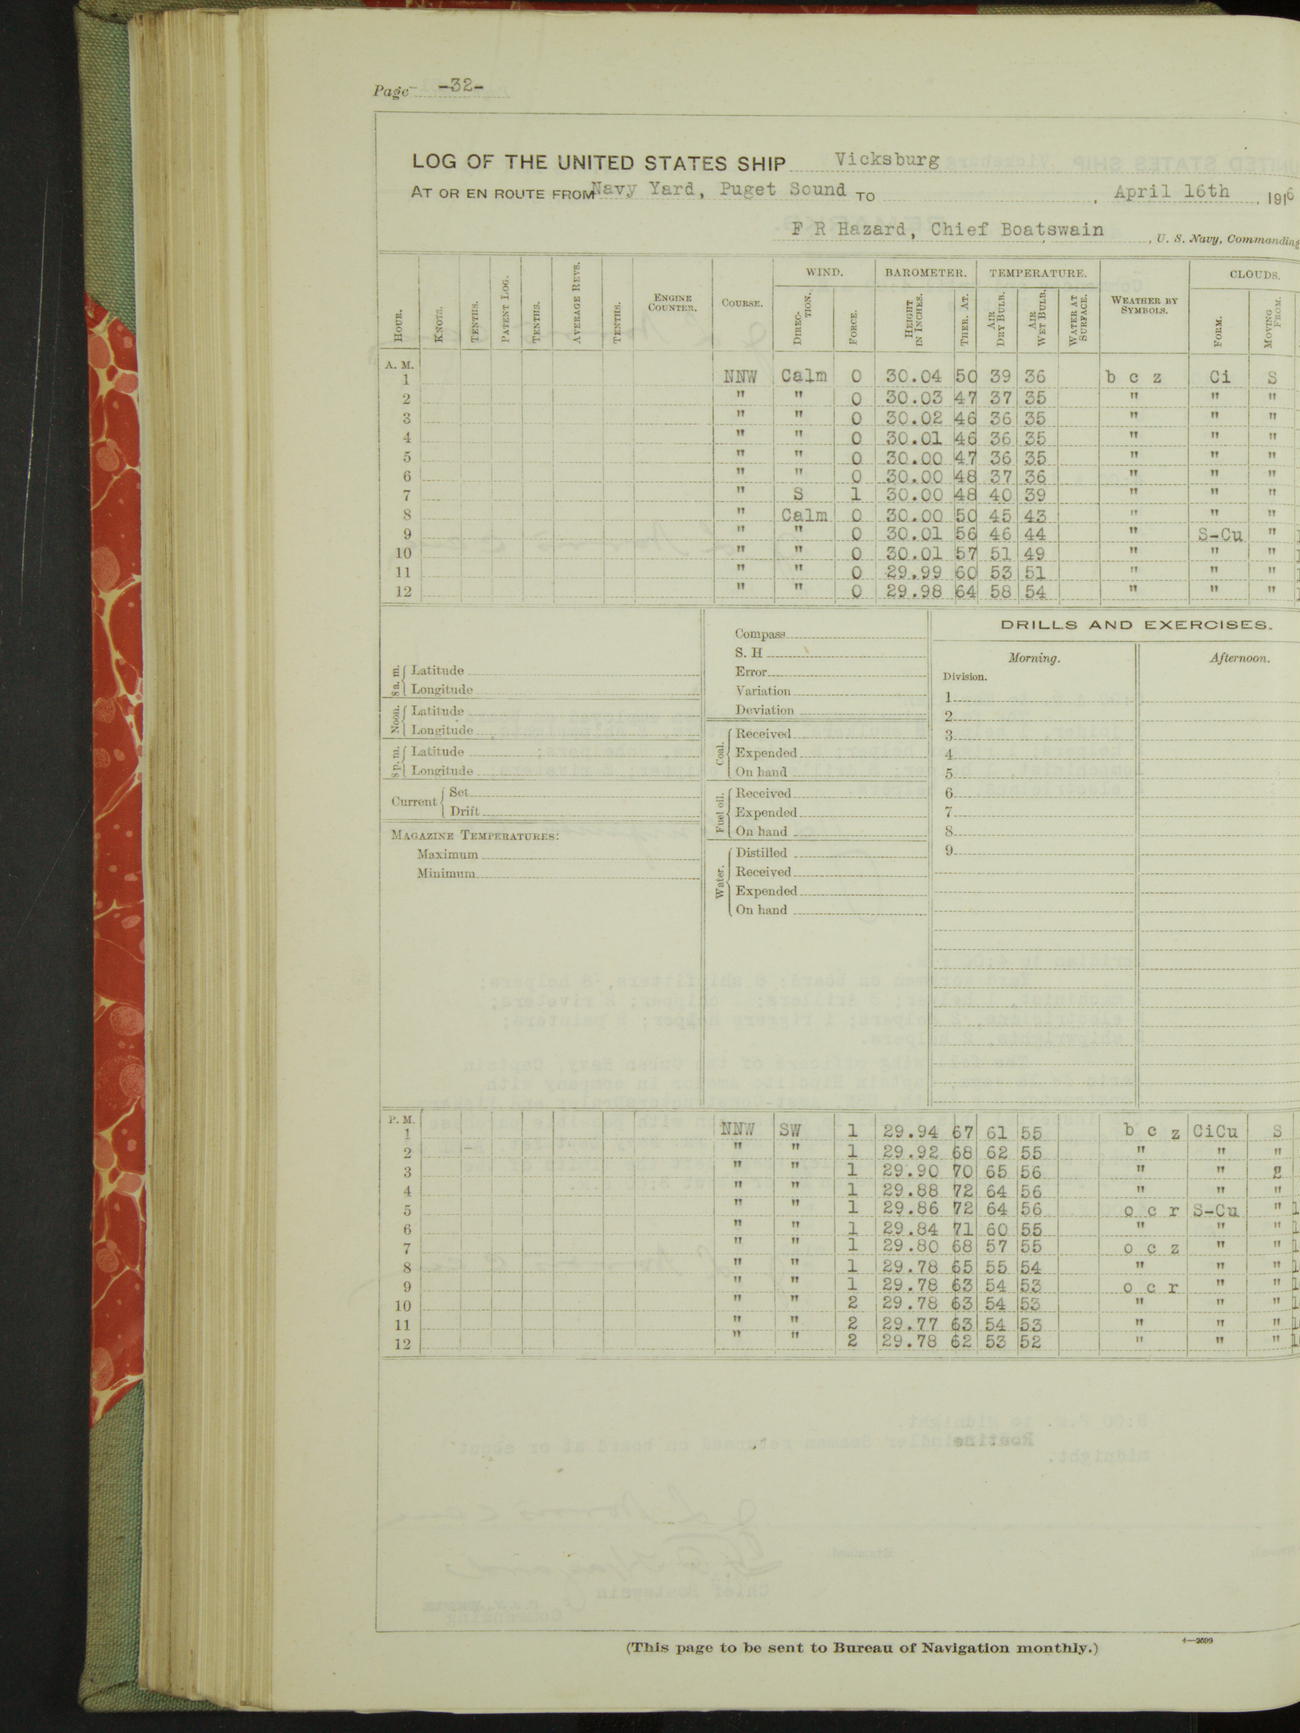 Page -32-
LOG OF THE UNITED STATES SHIP Vicksburg
AT OR EN ROUTE FROM Navy Yard, Puget Sound TO , April 16th , 1916
F R Hazard, Chief Boatswain , U. S. Navy, Commanding
HOUR. KNOTS. TENTHS. PATENT LOG. TENTHS. AVERAGE REVS. TENTHS. ENGINE COUNTER. COURSE. WIND. DIREC-TION. FORCE. BAROMETER. HEIGHT IN INCHES. THER. AT. TEMPERATURE. AIR DRY BULB. AIR WET BULB. WATER AT SURFACE. WEATHER BY SYMBOLS. CLOUDS. FORM. MOVING FROM.
A. M.
1 NNW Calm 0 30.04 50 39 36 b c z Ci S
2 " " 0 30.03 47 37 35 " " "
3 " " 0 30.02 46 36 35 " " "
4 " " 0 30.01 46 36 35 " " "
5 " " 0 30.00 47 36 35 " " "
6 " " 0 30.00 48 37 36 " " "
7 " S 1 30.00 48 40 39 " " "
8 " Calm 0 30.00 50 45 43 " " "
9 " " 0 30.01 56 46 44 " S-Cu "
10 " " 0 30.01 57 51 49 " " "
11 " " 0 29.99 60 53 51 " " "
12 " " 0 29.98 64 58 54 " " "
8 a. m. Latitude
Longitude
Noon. Latitude
Longitude
8 p. m. Latitude
Longitude
Current Set
Drift
MAGAZINE TEMPERATURES:
Maximum
Minimum
Compass
S. H
Error
Variation
Deviation
Coal. Received
Expended
On hand
Fuel oil. Received
Expended
On hand
Water. Distilled
Received
Expended
On hand
DRILLS AND EXERCISES.
Morning. Afternoon.
Division.
1
2
3
4
5
6
7
8
9
P. M.
1 NNW SW 1 29.94 67 61 55 b c z CiCu S
2 " " 1 29.92 68 62 55 " " "
3 " " 1 29.90 70 65 56 " " "
4 " " 1 29.88 72 64 56 " " "
5 " " 1 29.86 72 64 56 o c r S-Cu "
6 " " 1 29.84 71 60 55 " " "
7 " " 1 29.80 68 57 55 o c z " "
8 " " 1 29.78 65 55 54 " " "
9 " " 1 29.78 63 54 53 o c r " "
10 " " 2 29.78 63 54 53 " " "
11 " " 2 29.77 63 54 53 " " "
12 " " 2 29.78 62 53 52 " " "
(This page to be sent to Bureau of Navigation monthly.)
4—2699